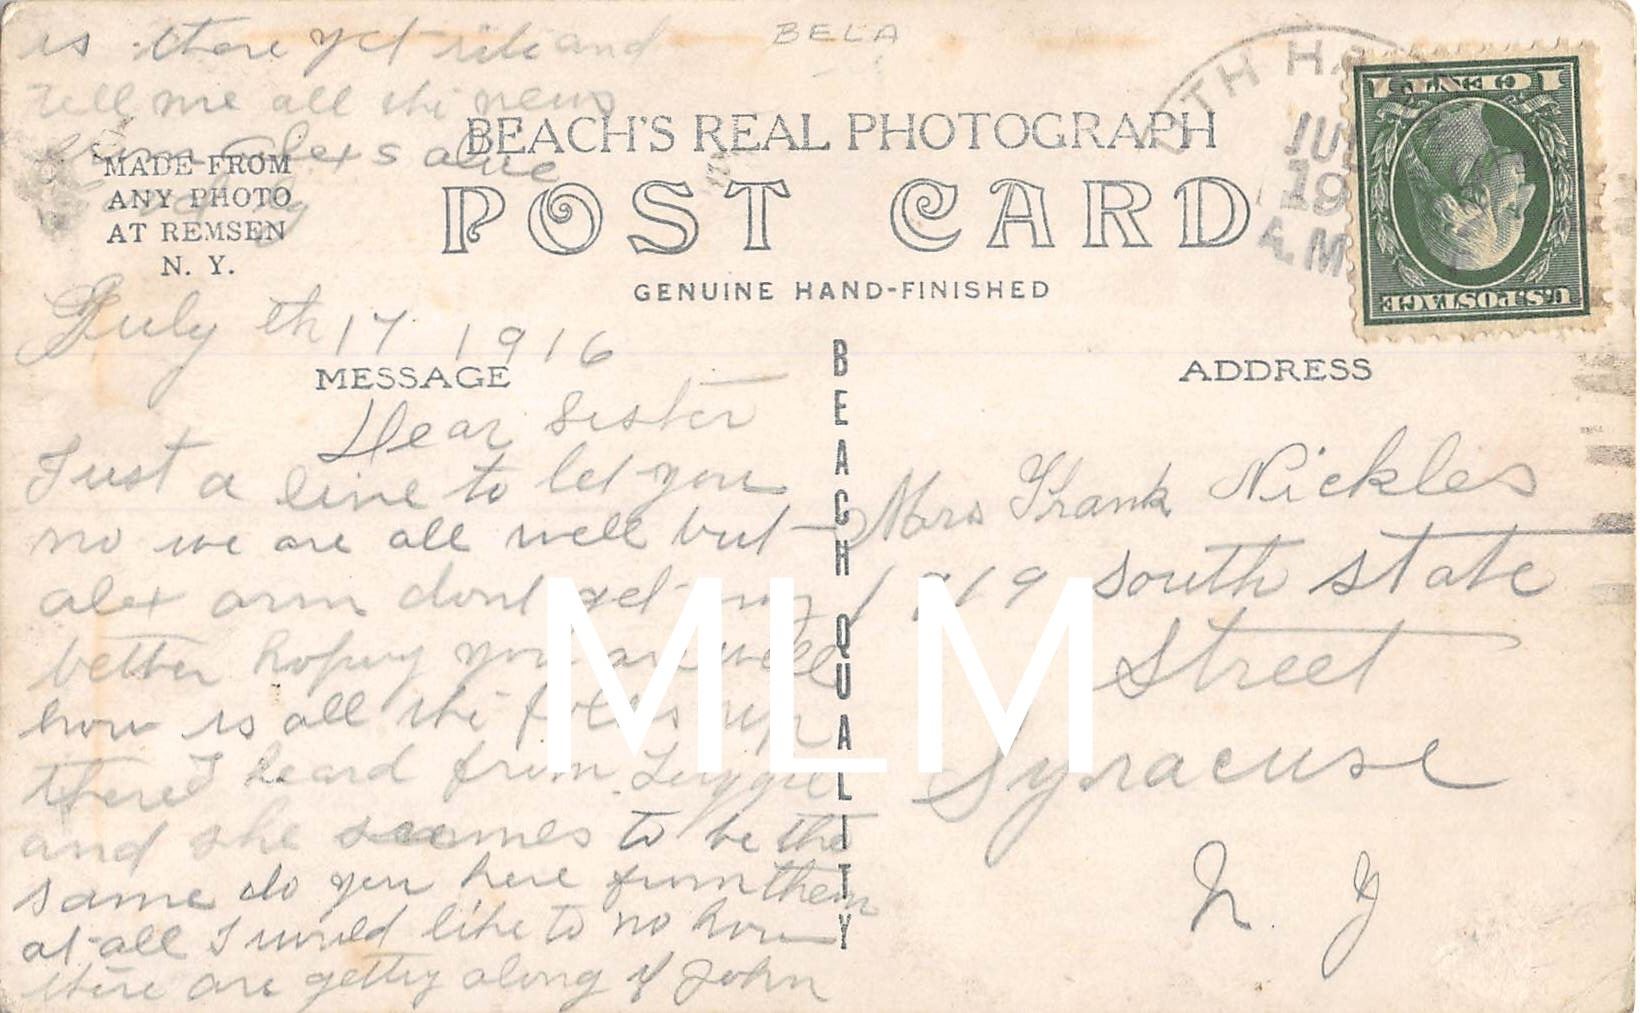 BELA
is there yet rite and
tell me all the news
BEACH'S REAL PHOTOGRAPH
POST CARD
GENUINE HAND-FINISHED
MADE FROM
ANY PHOTO
AT REMSEN
N. Y.
TH HA
JUL
19
A.M
1 CENT 1
U.S. POSTAGE
July th 17 1916
MESSAGE
Dear Sister
Just a line to let you
no we are all well but
alex arm dont get any
better hoping you are well
how is all the folks up
there I heard from
and she seemes to be the
same do you here from them
at all I would like to no how
there are getting along if John
BEACH QUALITY
ADDRESS
Mrs Frank Nickles
1919 South State
Street
Syracuse
N. Y
MLM